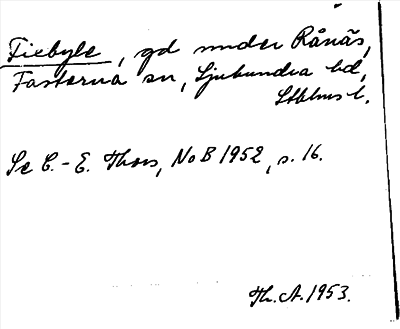 Tiebyle, gd under Rånäs,
Fasterna sn, Sjuhundra hd,
Sthlms l.
Se C.-E. Thors, NoB 1952, s. 16.
Th. A. 1953.